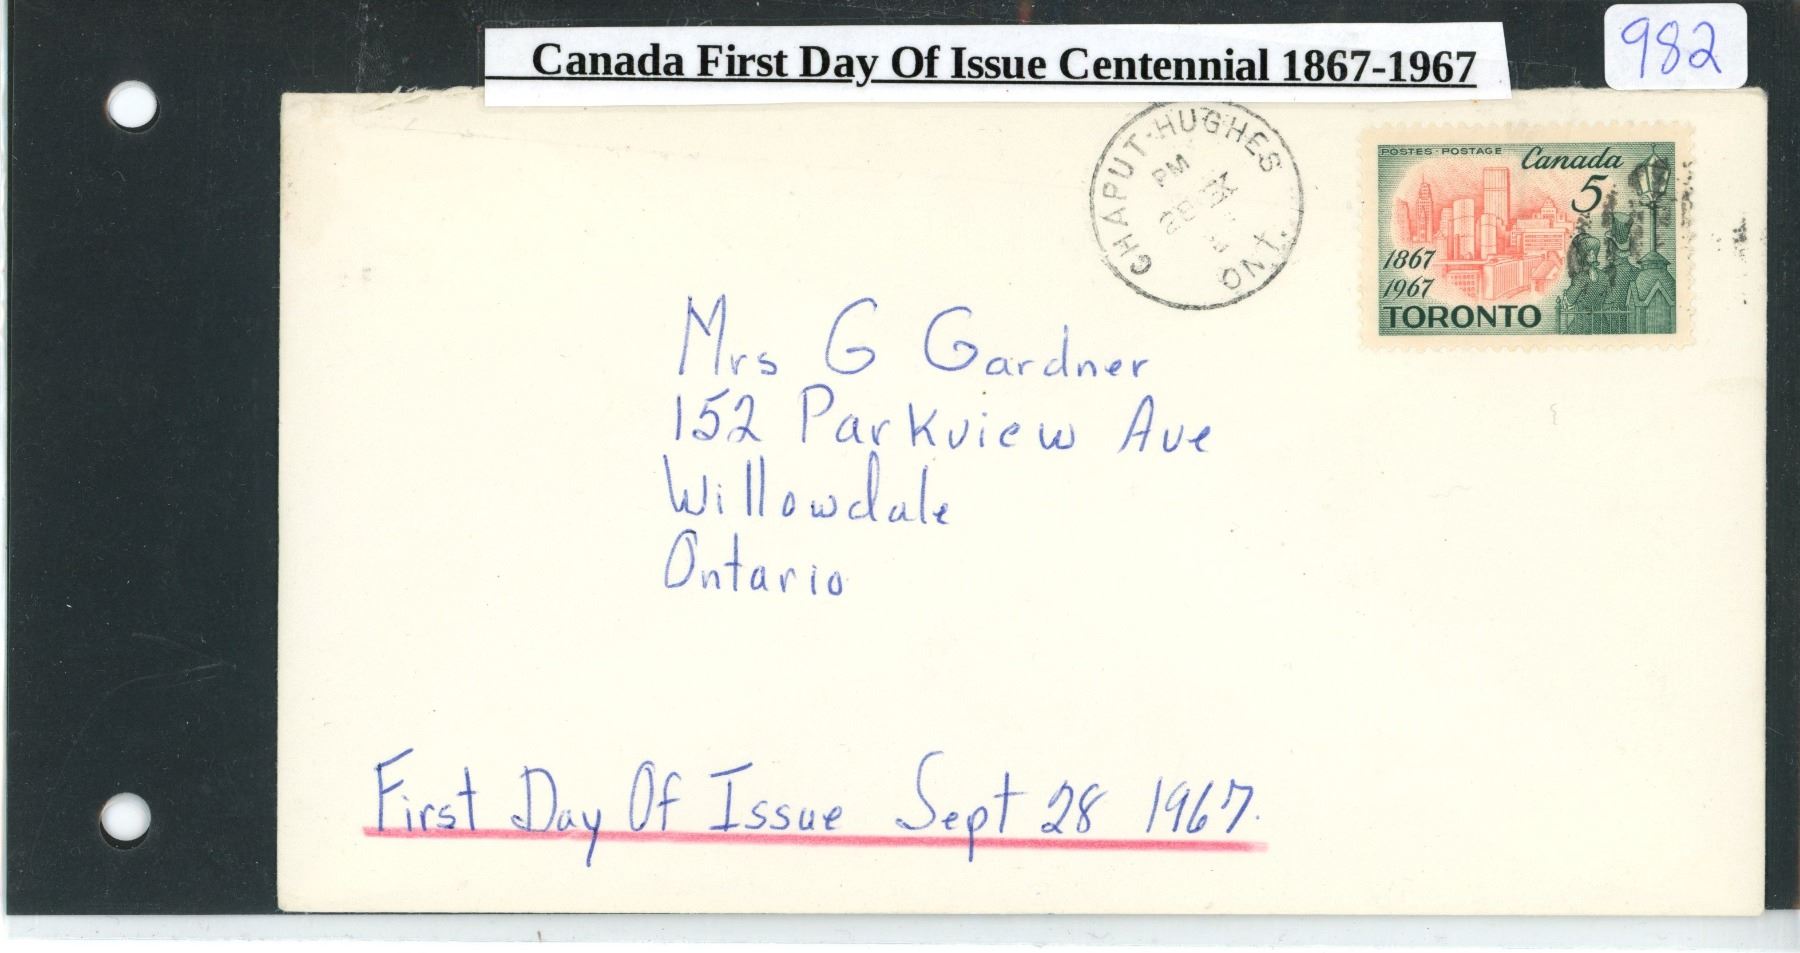 Canada First Day Of Issue Centennial 1867-1967
982
CHAPUT-HUGHES
PM
28
ONT.
POSTES · POSTAGE
Canada
5
1867
1967
TORONTO
Mrs G Gardner
152 Parkview Ave
Willowdale
Ontario
First Day Of Issue Sept 28 1967.